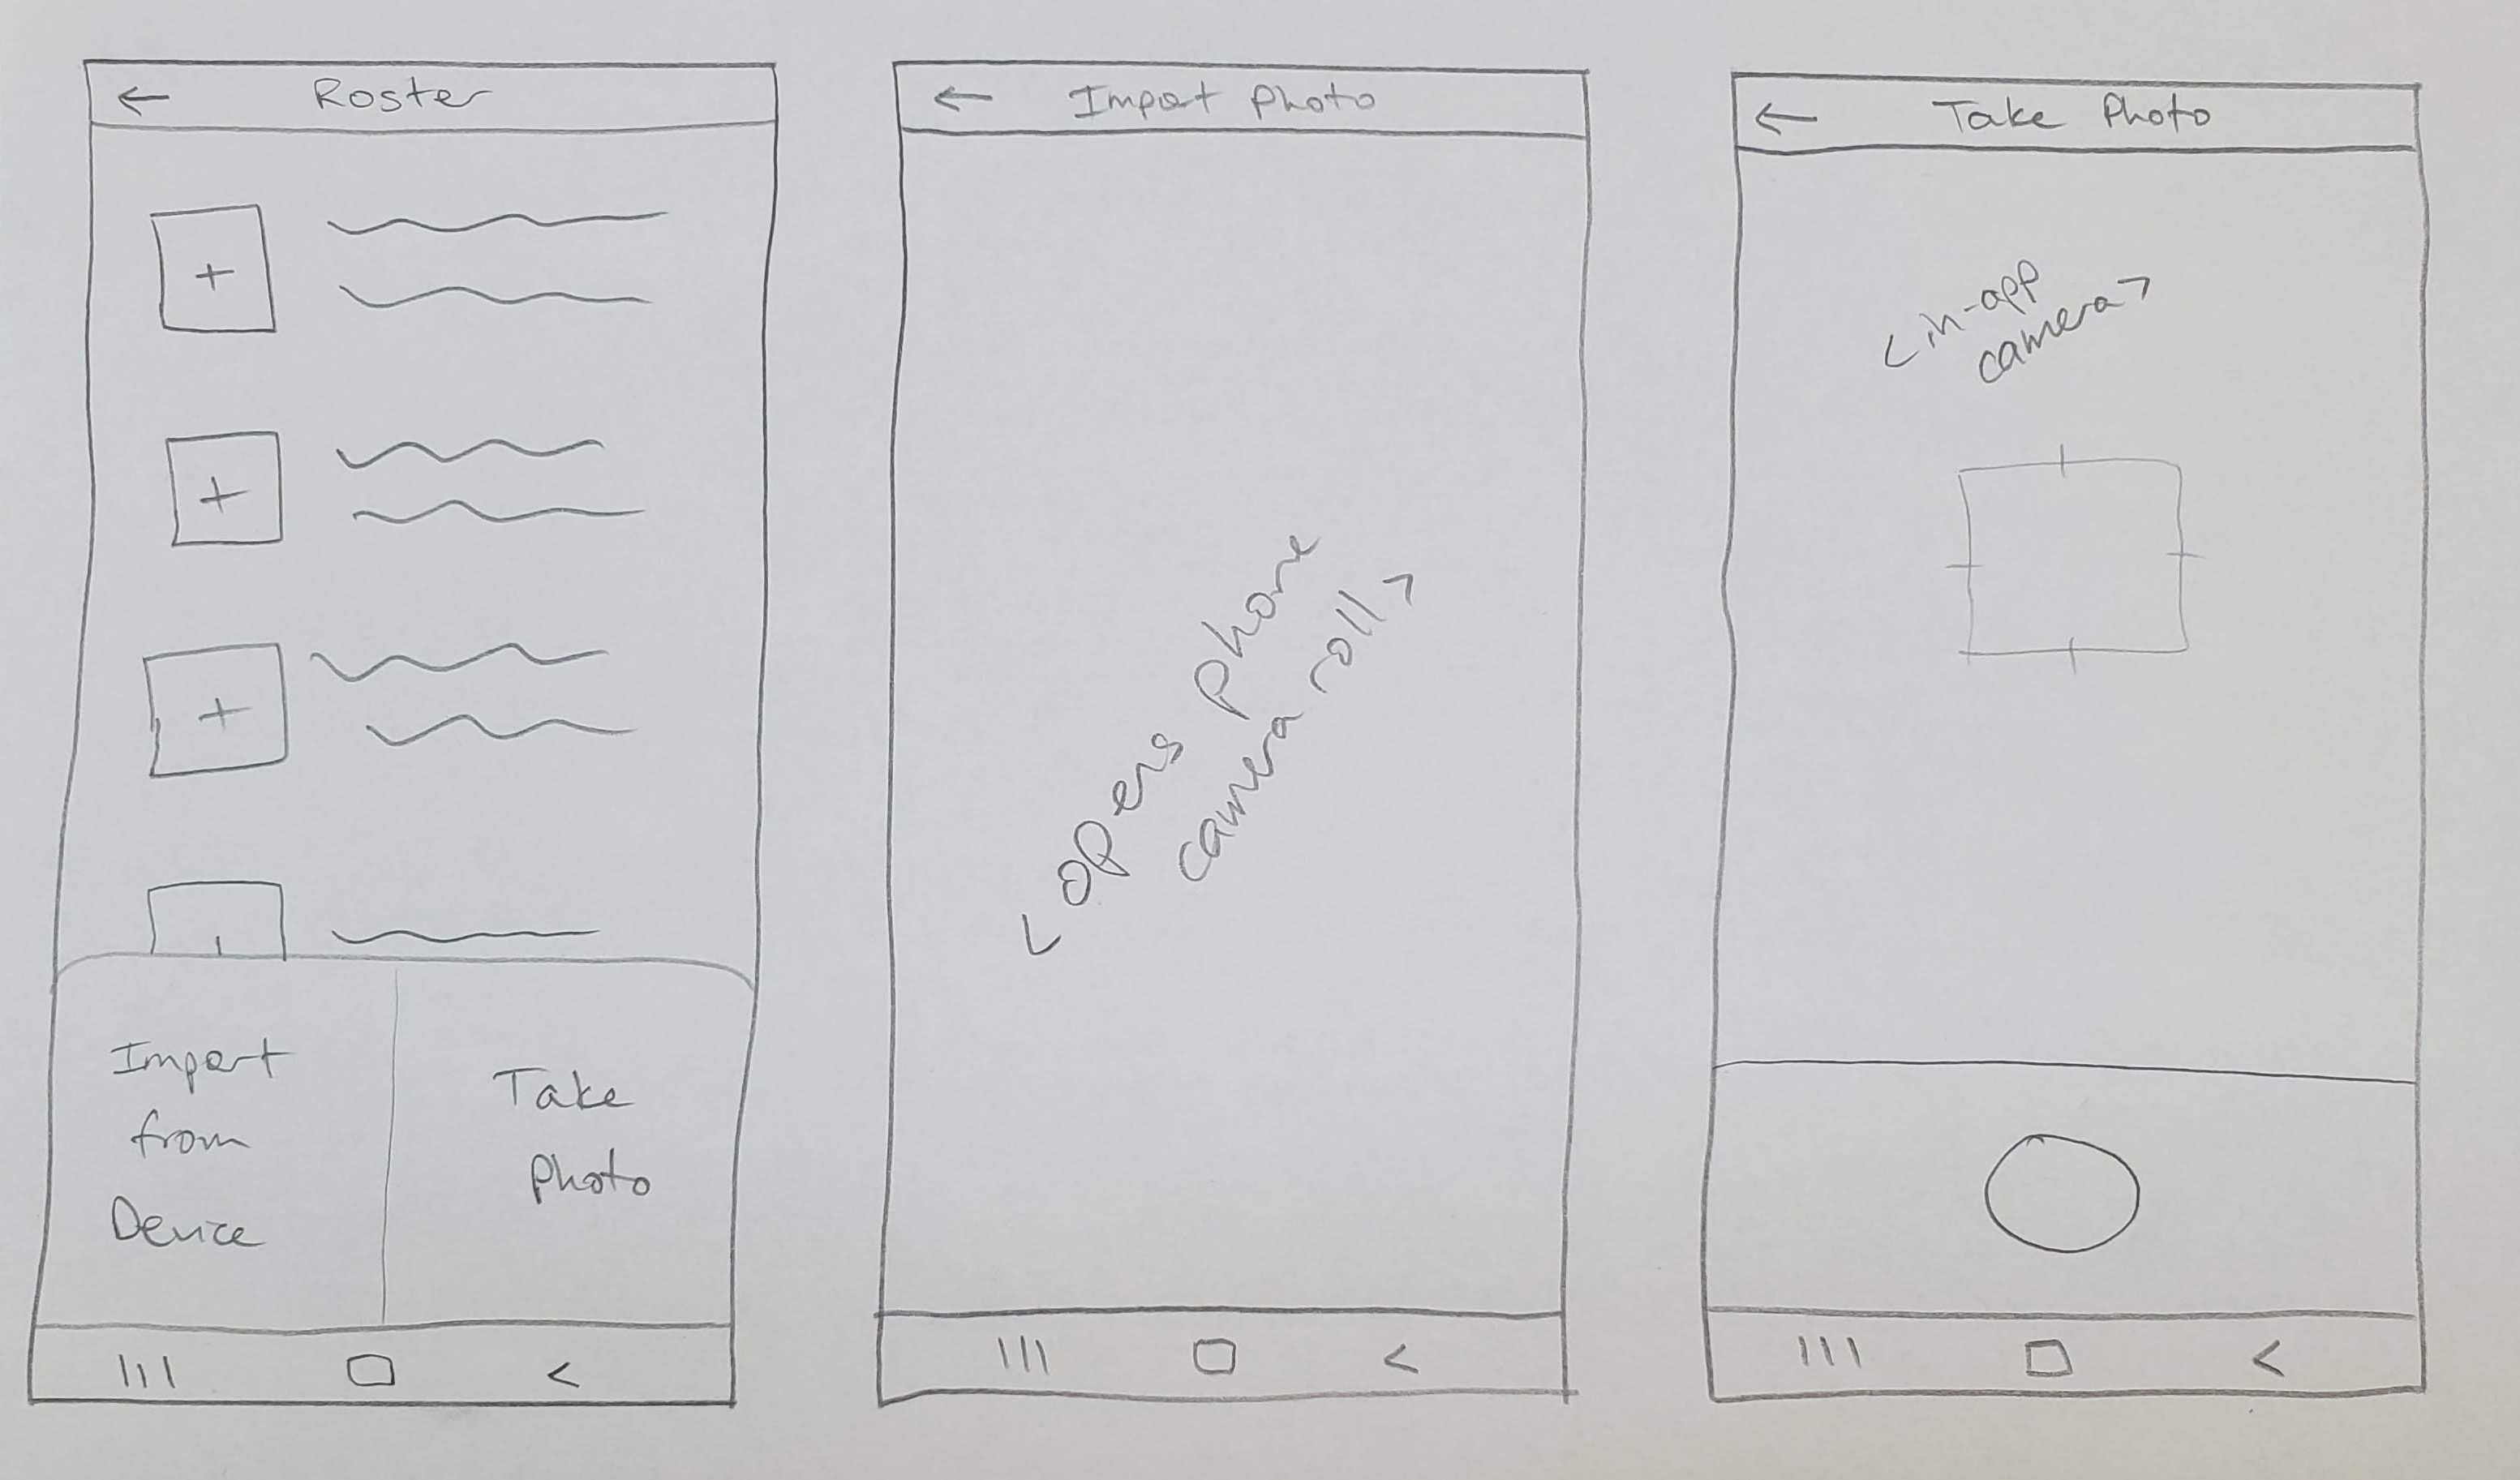 ← Roster
+
+
+
Import
from
Device
Take
Photo
||| <
← Import Photo
<opens phone
camera roll>
||| <
← Take Photo
<in-app
camera>
||| <